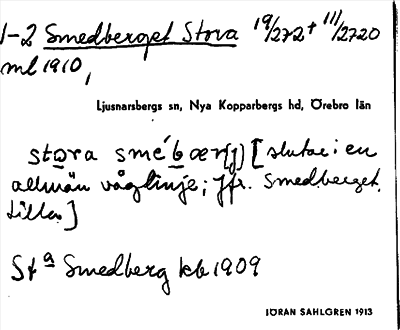 1-2 Smedberget Stora 19/272 + 111/2720
ml 1910,
Ljusnarsbergs sn, Nya Kopparbergs hd, Örebro län
stora smébær(j) [slutar i en
allmän våglinje; jfr. Smedberget,
Lilla]
Sta Smedberg kb 1909
JÖRAN SAHLGREN 1913